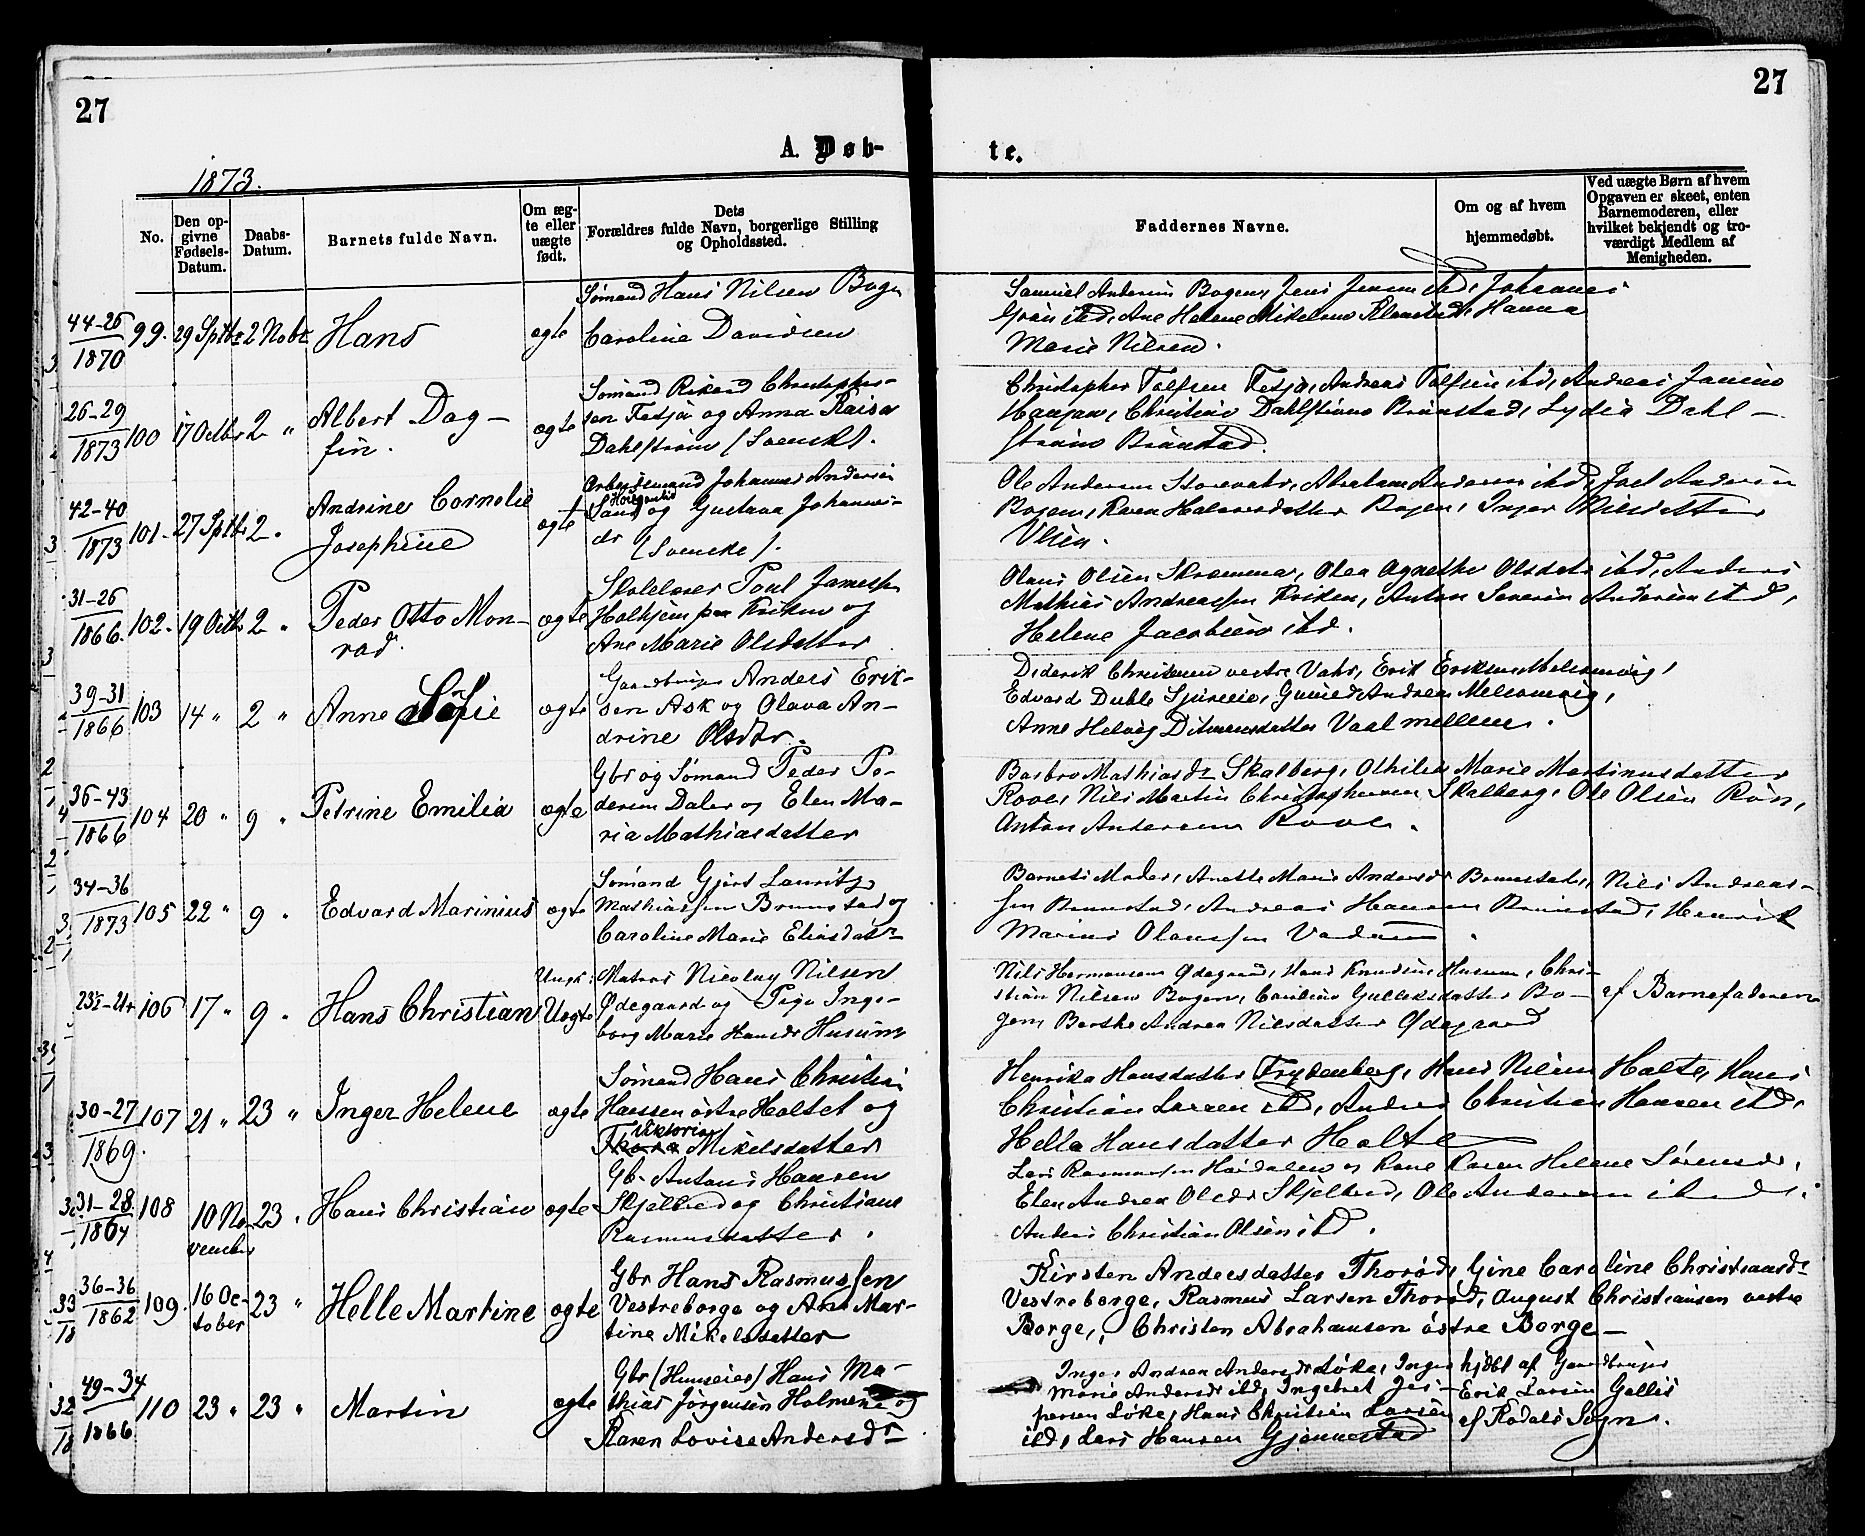 27
27
A. Døb-
te.
1873.
No.
Den op-
givne
Fødsels-
Datum.
Daabs-
Datum.
Barnets fulde Navn.
Om æg-
te eller
uægte
født.
Dets
Forældres fulde Navn, borgerlige Stilling
og Opholdssted.
Faddernes Navne.
Om og af hvem
hjemmedøbt.
Ved uægte Børn af hvem
Opgaven er skeet, enten
Barnemoderen, eller
hvilket bekjendt og tro-
værdigt Medlem af
Menigheden.
44-26
1870
99. 29 Sptbr 2 Nobr Hans ægte
Sømand Hans Nilsen Bogen
Caroline Davidsen
Samuel Andersen Bogen, Jens Jensen ibd, Johannes
ibd, Ane Helene Mikelsen Hanna
Marie Nilsen.
26-29
1873
100 17 Octbr 2 "
Albert Dag-
fin.
ægte
Sømand Rikard Christopher-
sen Tesjø og Anna Raisa
Dahlstrøm (Svensk).
Christopher Tolfsen Tesjø, Andreas Tolfsen ibd, Andreas
Christine Dahlstrøm Brunstad, Lydia Dahl-
strøm Brunstad.
42-40
1873
101. 27 Sptbr 2 "
Andrine Cornelie
Josephine
ægte
Arbeidsmand Johannes Andersen
og Gustava Johannes-
dr (Svenske).
Ole Andersen Storevahr, Abraham Andersen ibd, Joel Andersen
Bogen, Karen Halvorsdatter Bogen, Inger Nilsdatter
31-26
1866.
102. 19 Octbr 2 "
Peder Otto Mon-
rad.
ægte
Skolelærer Poul Jamessen
Holtejem pr Kviken og
Ane Marie Olsdatter
Olaus Olsen Skræmmen, Olea Agnethe Olsdatr ibd, Anders
Mathias Andreassen Kviken, Anton Severin Andersen ibd,
Helene Jacobsen ibd.
39-31
1866
103 14 " 2 " Anne Sofie ægte
Gaardbruger Anders Erik-
sen Ask og Olava An-
drine Olsdtr.
Diderik Christensen vestre Vahr, Erik Eriksen Melsomvig,
Edvard Duble Gunild Andrea Melsomvig,
Anne Helvig Ditmansdatter Vaal mellem.
36-43
1866
104 20 " 9 " Petrine Emilia ægte
Gbr og Sømand Peder Pe-
dersen Daler og Elen Ma-
ria Mathiasdatter
Barbro Mathiasdr Skalberg, Othilia Marie Martinusdatter
Rove, Nils Martin Christophersen Skalberg, Ole Olsen Røn,
Anton Andersen Rove.
34-36
1873
105 22 " 9 " Edvard Marinius ægte
Sømand Gjert Lauritz
Mathiassen Brunstad og
Caroline Marie Eliasdatr
Barnets Moder, Anette Marie Andersdr Brunstad, Nils Andreas-
sen Brunstad, Andreas Hansen Brunstad, Henrik
Marius Olaussen
23½-21½ 106 17 " 9 " Hans Christian
Ungk:
Uægte
Matros Nicolay Nilsen
Ødegaard og Pige Inge-
borg Marie Hansdr Husum
Nils Hermansen Ødegaard, Hans Knudsen Husum, Chri-
stian Nilsen Bogen, Caroline Gulleksdatter Bo-
gen, Berthe Andrea Nilsdatter Ødegaard
af Barnefaderen
30-27
1869.
107 21 " 23 " Inger Helene ægte
Sømand Hans Christian
Hanssen østre Haltet og
Viktoria
Thora Mikelsdatter
Henrika Hansdatter Frydenberg, Hans Nilsen Holte, Hans
Christian Larsen ibd, Anders Christian Hansen ibd,
Hella Hansdatter Holte
31-28
1867
108 10 No-
vember
23 " Hans Christian ægte
Gb. Antons Hansen
Skjelbred og Christiane
Rasmusdatter.
Lars Rasmussen og Kone Karen Helene Sørensdr,
Elen Andrea Olsdr Skjelbred, Ole Andersen ibd,
Anders Christian Olsen ibd.
36-36
1862
109. 16 Oc-
tober
23 " Helle Martine ægte
Gbr Hans Rasmussen
Vestreborge og Ane Mar-
tine Mikelsdatter
Kirsten Andersdatter Thorød, Gine Caroline Christiansdr
Vestreborge, Rasmus Larsen Thorød, August Christiansen vestre
Borge, Christen Abrahamsen østre Borge
49-34
1866
110 23 " 23 " Martin ægte
Gbr (Huuseier) Hans Ma-
thias Jørgensen Holmene og
Karen Lovise Andersdr
Inger Andrea Andersdr Løke, Inger
Marie Andersdr ibd, Ingebret Jes-
persen Løke, Hans Christian Larsen
ibd, Lars Hansen Gjennestad
hjdbt af Gaardbruger
Erik Larsen Gallis
af Rodals Sogn.